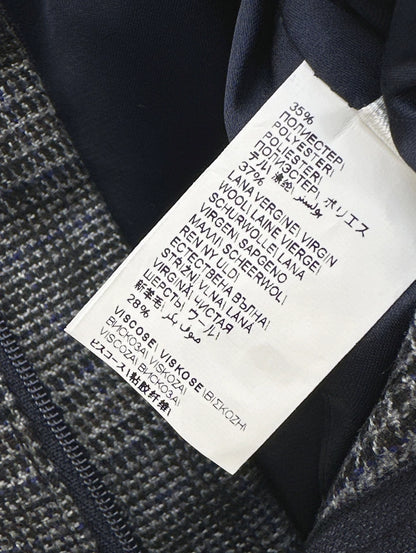 35%
ПОЛИЕСТЕР\
POLYESTER\
POLIESTER\
ПОЛИЭСТЕР\ ポリエス
テル\ بوليستر
37%
LANA VERGINE\ VIRGIN
WOOL\ LAINE VIERGE\
SCHURWOLLE\ LANA
VIRGEN\ SARGENO
MALLI\ SCHEERWOL\
REN NY ULD\
ЕСТЕСТВЕНА ВЪЛНА\
STRIŽNÍ VLNA\ LANA
VIRGINA\ ЧИСТАЯ
ШЕРСТЬ\ ウール\
新羊毛\ صوف بكر
28%
VISCOSE\ VISKOSE\ ΒΙΣΚΟΖΗ\
ВИСКОЗА\ VISKOZA\
VISCOZA\ ВИСКОЗА\
ビスコース\ 粘胶纤维\